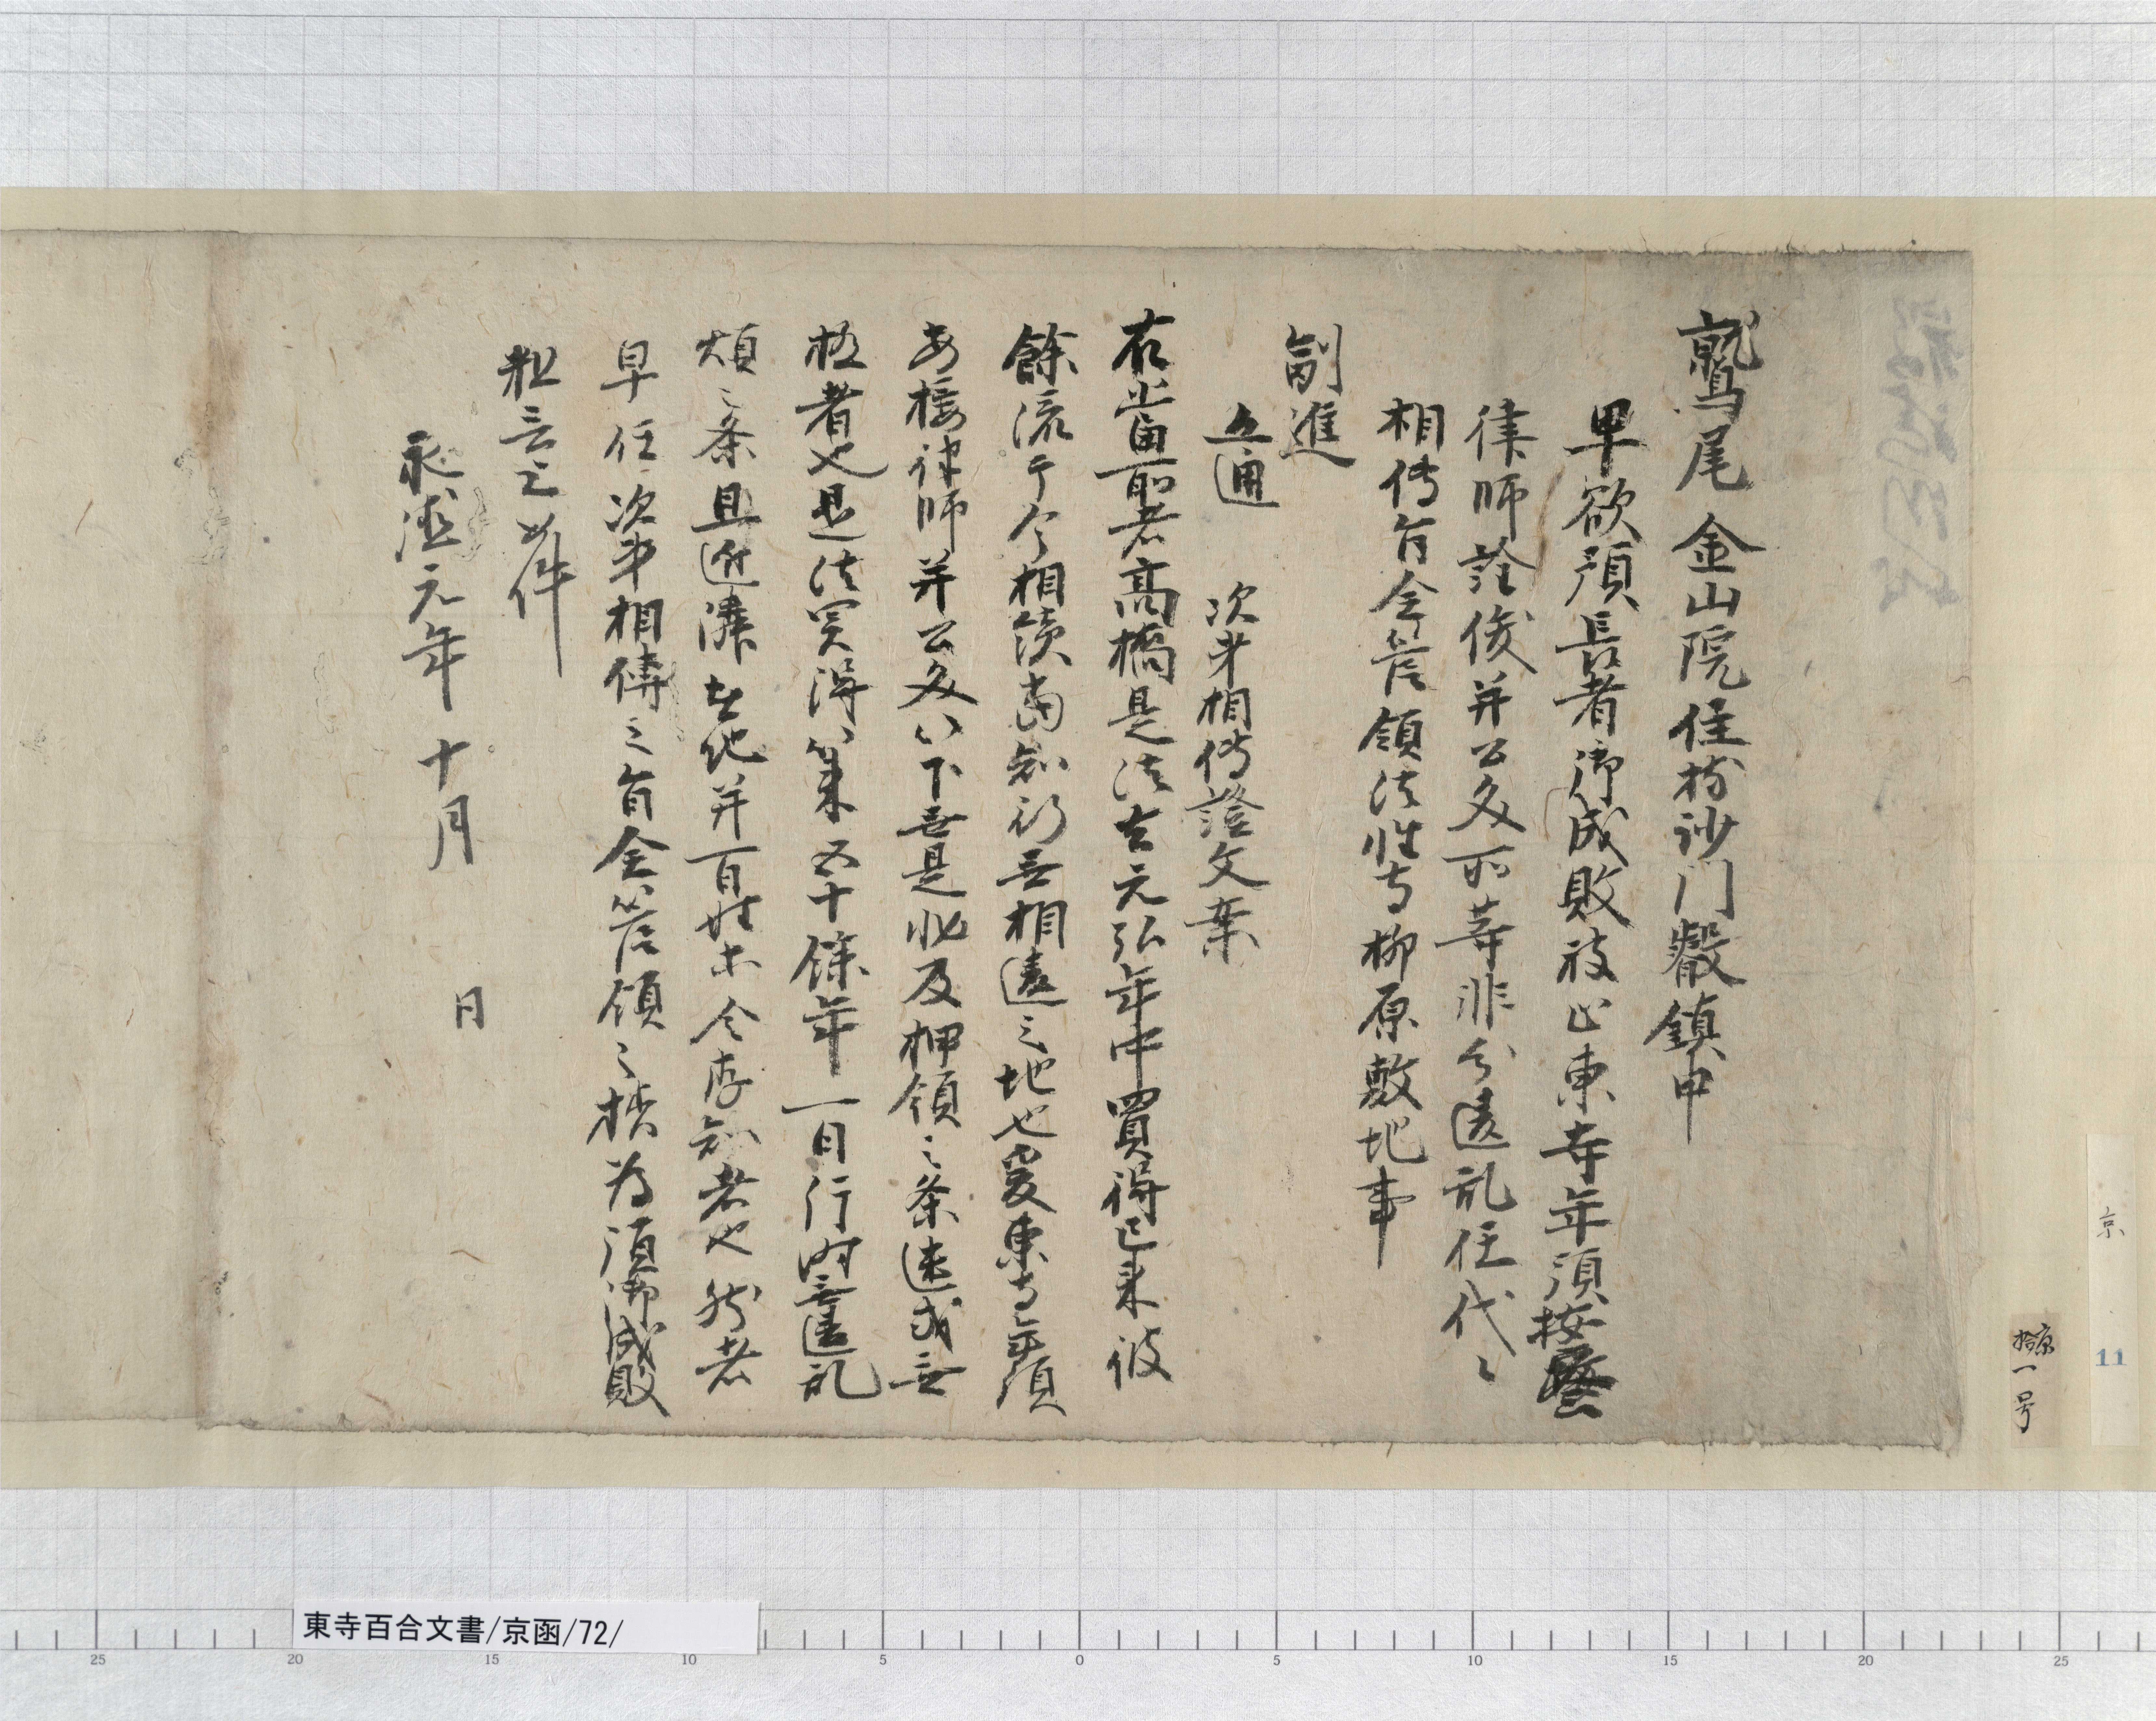 鷲尾金山院住持沙門叡鎮申
早欲預長者御成敗被止東寺年預按察
律師詮俊并公文所等非分違乱任代々
相傳旨全管領法性寺柳原敷地事
副進
五通 次第相傳證文案
右當所者高橋是法去元弘年中買得已来彼
餘流于今相續當知行無相違之地也爰東寺年預
按律師并公文以下無是非及押領之条造成無
極者也是法買得以来五十餘年一日片時無違乱
煩之条且近隣在地并百姓等令存知者也然者
早任次第相傳之旨全管領之様為預御成敗
粗言上如件
永徳元年十月 日
京
11
京
拾一号
東寺百合文書/京函/72/
25 20 15 10 5 0 5 10 15 20 25